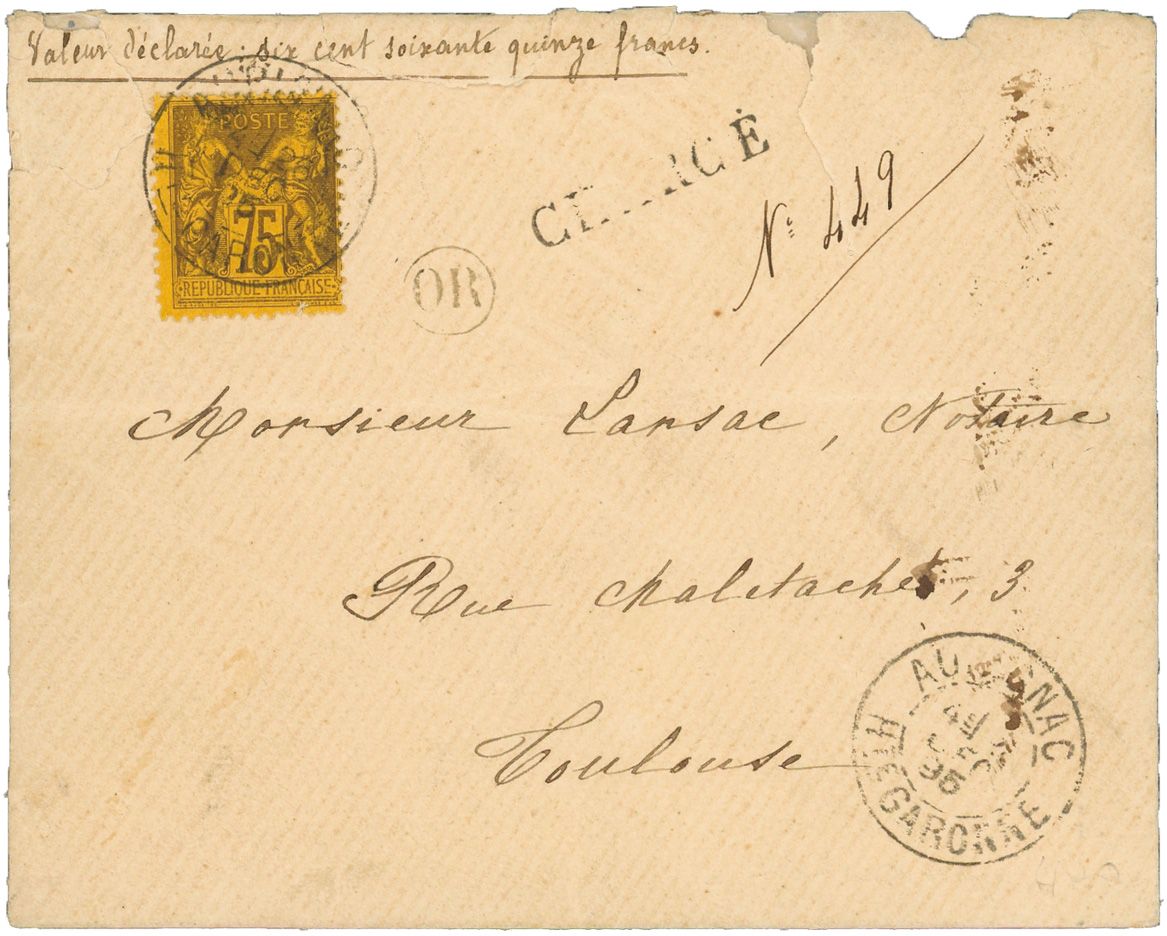 Valeur déclarée : six cent soixante quinze francs.
POSTE
75
REPUBLIQUE FRANCAISE
CHARGÉ
N° 449
OR
Monsieur Lansac, Notaire
Rue Maletache, 3
Toulouse
AURIGNAC
HTE GARONNE